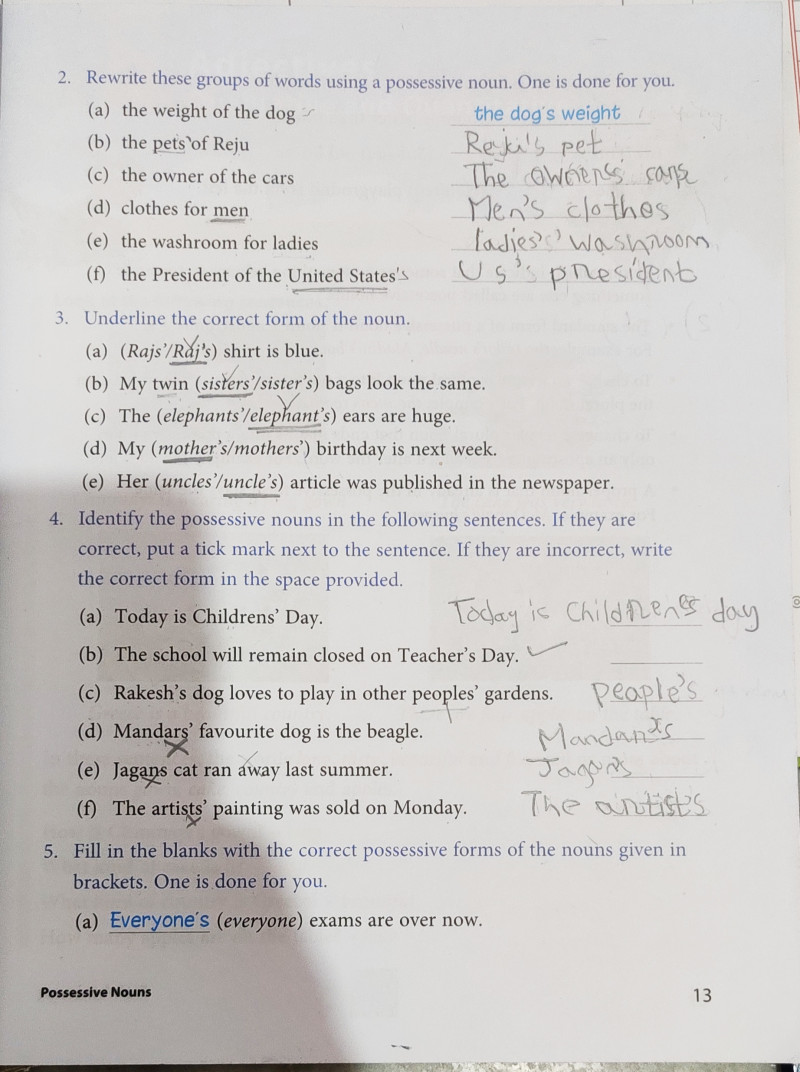 2. Rewrite these groups of words using a possessive noun. One is done for you.
(a) the weight of the dog the dog's weight
(b) the pets of Reju Reju's pet
(c) the owner of the cars The owner's cars
(d) clothes for men Men's clothes
(e) the washroom for ladies ladies' washroom
(f) the President of the United State's Us's president
3. Underline the correct form of the noun.
(a) (Rajs'/Raj's) shirt is blue.
(b) My twin (sisters'/sister's) bags look the same.
(c) The (elephants'/elephant's) ears are huge.
(d) My (mother's/mothers') birthday is next week.
(e) Her (uncles'/uncle's) article was published in the newspaper.
4. Identify the possessive nouns in the following sentences. If they are
correct, put a tick mark next to the sentence. If they are incorrect, write
the correct form in the space provided.
(a) Today is Childrens' Day. Today is Children's day
(b) The school will remain closed on Teacher's Day.
(c) Rakesh's dog loves to play in other peoples' gardens. people's
(d) Mandars' favourite dog is the beagle. Mandar's
(e) Jagans cat ran away last summer.
(f) The artists' painting was sold on Monday. The artist's
5. Fill in the blanks with the correct possessive forms of the nouns given in
brackets. One is done for you.
(a) Everyone's (everyone) exams are over now.
Possessive Nouns 13